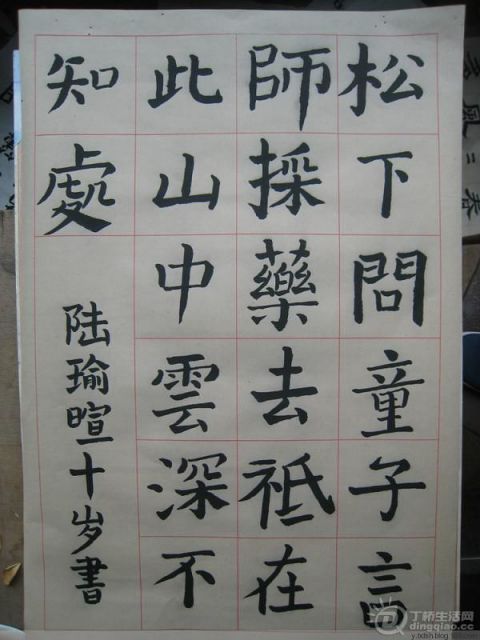 松下問童子言
師採藥去祗在
此山中雲深不
知處
陆瑜暄十岁書
風二春
丁桥生活网
dingqiao.cc